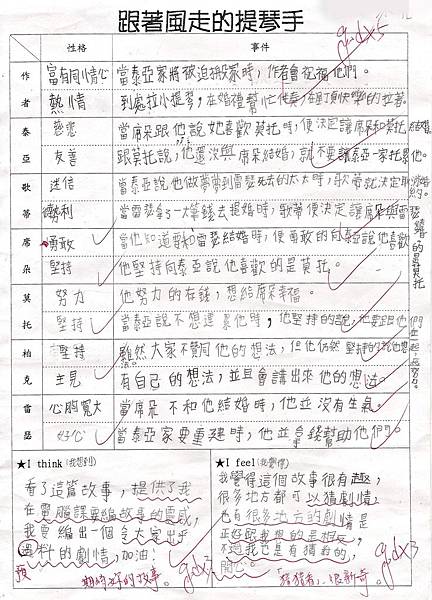 跟著風走的提琴手
性格 事件
作者 富有同情心 當泰亞家將被迫搬家時，作者會祝福他們。
熱情 到處拉小提琴，在婚禮幫忙伴奏，在
泰亞 慈悲 當席朵跟他說她喜歡莫托時，便決定讓席朵和莫托結婚
友善 跟莫托說，他還沒與席朵結婚，就不要讓泰亞一家托累他。
歌蒂 迷信 當泰亞說他做夢夢到雷瑟死去的太太時，歌蒂就決定取消婚約。
勢利 當雷瑟拿了一大筆錢去提婚時，歌蒂便決定讓席朵與雷瑟結婚
席朵 勇敢 當他知道要和雷瑟結婚時，便勇敢的向泰亞說他喜歡的是莫托
堅持 他堅持向泰亞說他喜歡的是莫托。
莫托 努力 他努力的存錢，想給席朵幸福。
堅持 當泰亞說不想連累他時，他堅持的說，他要跟他們一起
柏克 堅持 雖然大家不贊同他的想法，但他仍然堅持的說他想
主見 有自己的想法，並且會講出來他的想法。
雷瑟 心胸寬大 當席朵不和他結婚時，他並沒有生氣。
好心 當泰亞家要重建時，他並拿錢幫助他們。
★I think (我想到)
看了這篇故事，提供了我
在電腦課要編故事的靈感，
我要編出一個令大家出乎
預料的劇情，加油！
期待妳的故事。
★I feel (我覺得)
我覺得這個故事很有趣，
很多地方都可以猜劇情，
也有很多地方的劇情是
正好跟我想的是相反，
不過我也是有猜對的，
開心。
「猜猜看」，很新奇。
good×5
good×3
good×3